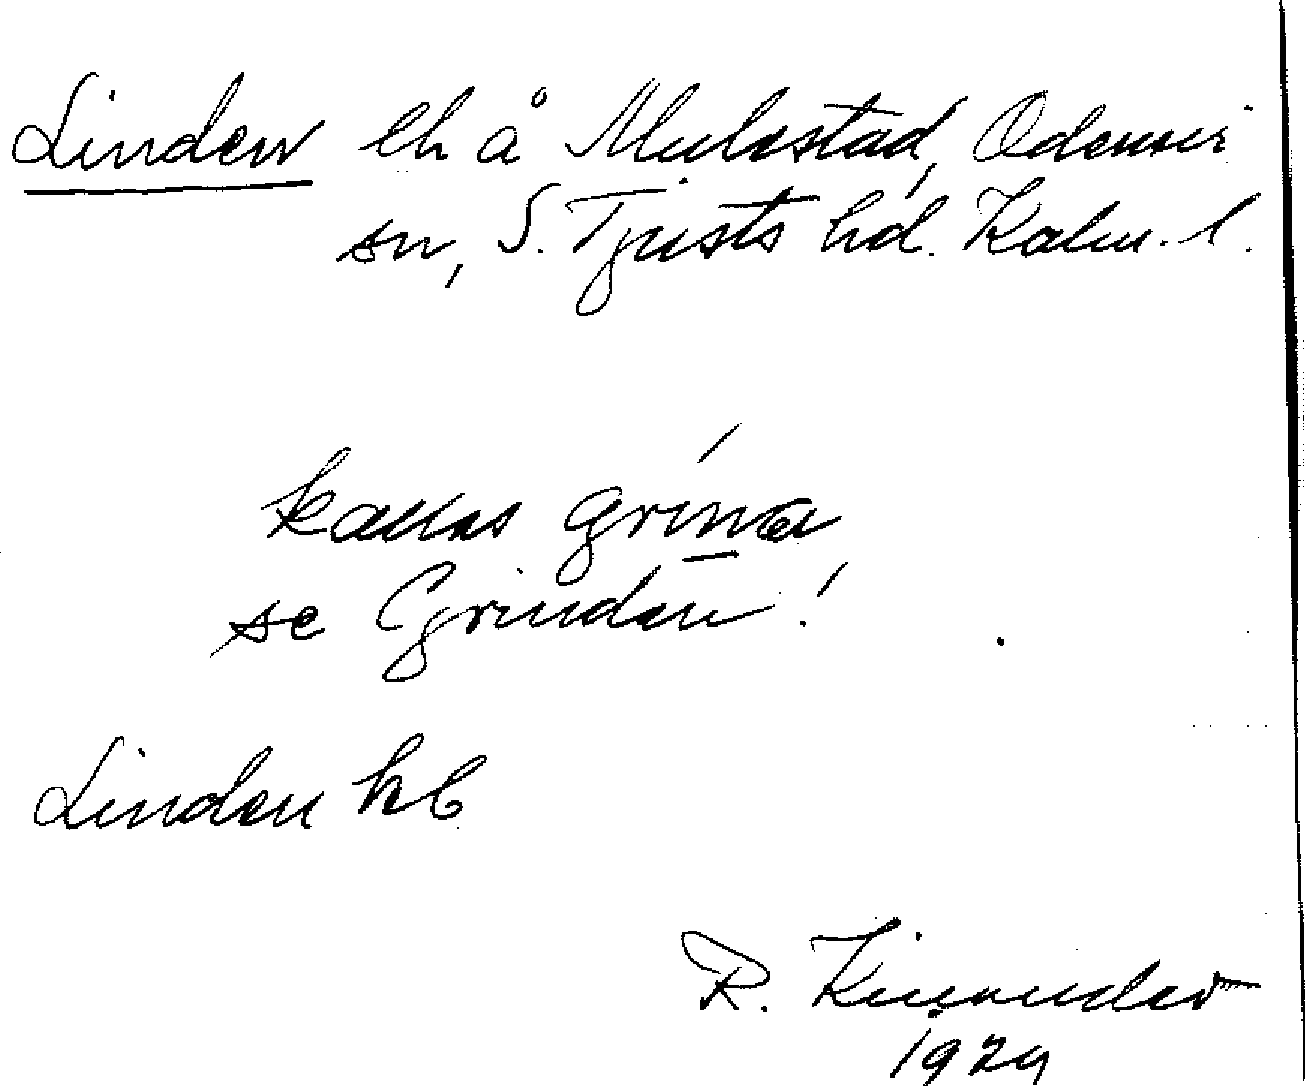 Linden lh å Mulestad, Odensvi
sn, S. Tjusts hd. Kalm. l.
kallas grina
se Grinden!
Linden kb
R. Kinnander
1929